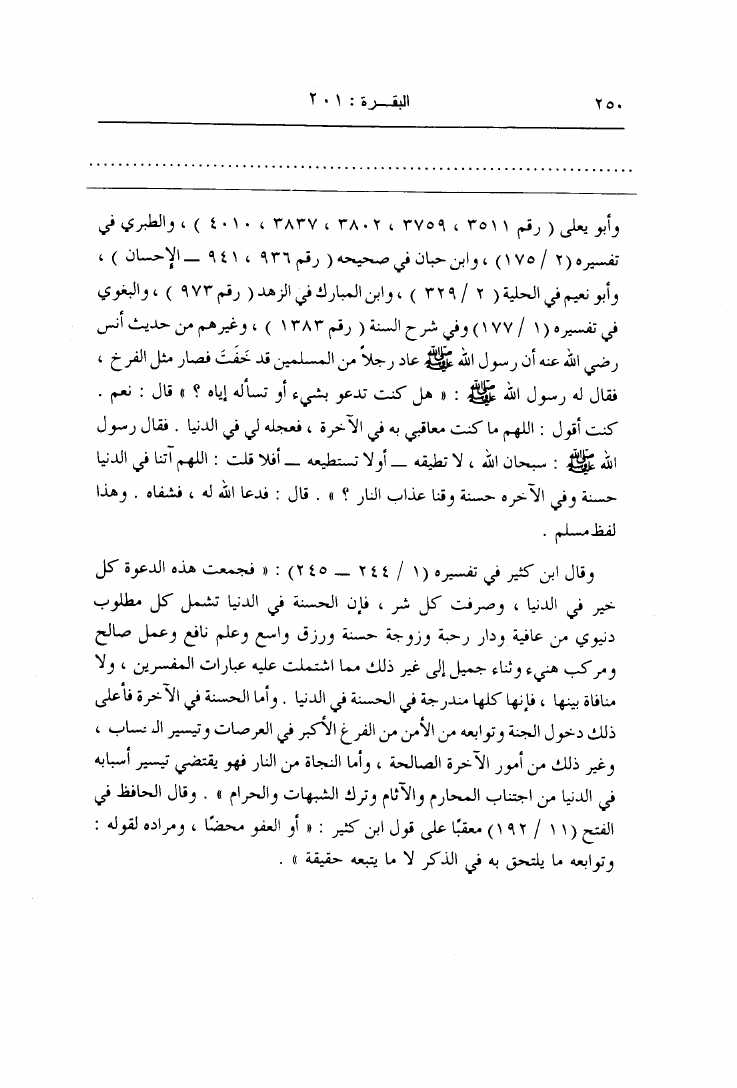 ٢٥٠ البقـــرة : ٢٠١
وأبو يعلى ( رقم ٣٥١١ ، ٣٧٥٩ ، ٣٨٠٢ ، ٣٨٣٧ ، ٤٠١٠ ) ، والطبري في
تفسيره (٢ / ١٧٥) ، وابن حبان في صحيحه ( رقم ٩٣٦ ، ٩٤١ ــ الإحسان ) ،
وأبو نعيم في الحلية ( ٢ / ٣٢٩ ) ، وابن المبارك في الزهد ( رقم ٩٧٣ ) ، والبغوي
في تفسيره (١ / ١٧٧) وفي شرح السنة ( رقم ١٣٨٣ ) ، وغيرهم من حديث أنس
رضي الله عنه أن رسول الله ﷺ عاد رجلاً من المسلمين قد خَفَتَ فصار مثل الفرخ ،
فقال له رسول الله ﷺ : « هل كنت تدعو بشيء أو تسأله إياه ؟ » قال : نعم .
كنت أقول : اللهم ما كنت معاقبي به في الآخرة ، فعجله لي في الدنيا . فقال رسول
الله ﷺ : سبحان الله ، لا تطيقه ــ أولا تستطيعه ــ أفلا قلت : اللهم آتنا في الدنيا
حسنة وفي الآخره حسنة وقنا عذاب النار ؟ » . قال : فدعا الله له ، فشفاه . وهذا
لفظ مسلم .
وقال ابن كثير في تفسيره (١ / ٢٤٤ ــ ٢٤٥) : « فجمعت هذه الدعوة كل
خير في الدنيا ، وصرفت كل شر ، فإن الحسنة في الدنيا تشمل كل مطلوب
دنيوي من عافية ودار رحبة وزوجة حسنة ورزق واسع وعلم نافع وعمل صالح
ومركب هنيء وثناء جميل إلى غير ذلك مما اشتملت عليه عبارات المفسرين ، ولا
منافاة بينها ، فإنها كلها مندرجة في الحسنة في الدنيا . وأما الحسنة في الآخرة فأعلى
ذلك دخول الجنة وتوابعه من الأمن من الفزع الأكبر في العرصات وتيسير ،
وغير ذلك من أمور الآخرة الصالحة ، وأما النجاة من النار فهو يقتضي تيسير أسبابه
في الدنيا من اجتناب المحارم والآثام وترك الشبهات والحرام » . وقال الحافظ في
الفتح (١١ / ١٩٢) معقبًا على قول ابن كثير : « أو العفو محضًا ، ومراده لقوله :
وتوابعه ما يلتحق به في الذكر لا ما يتبعه حقيقة » .